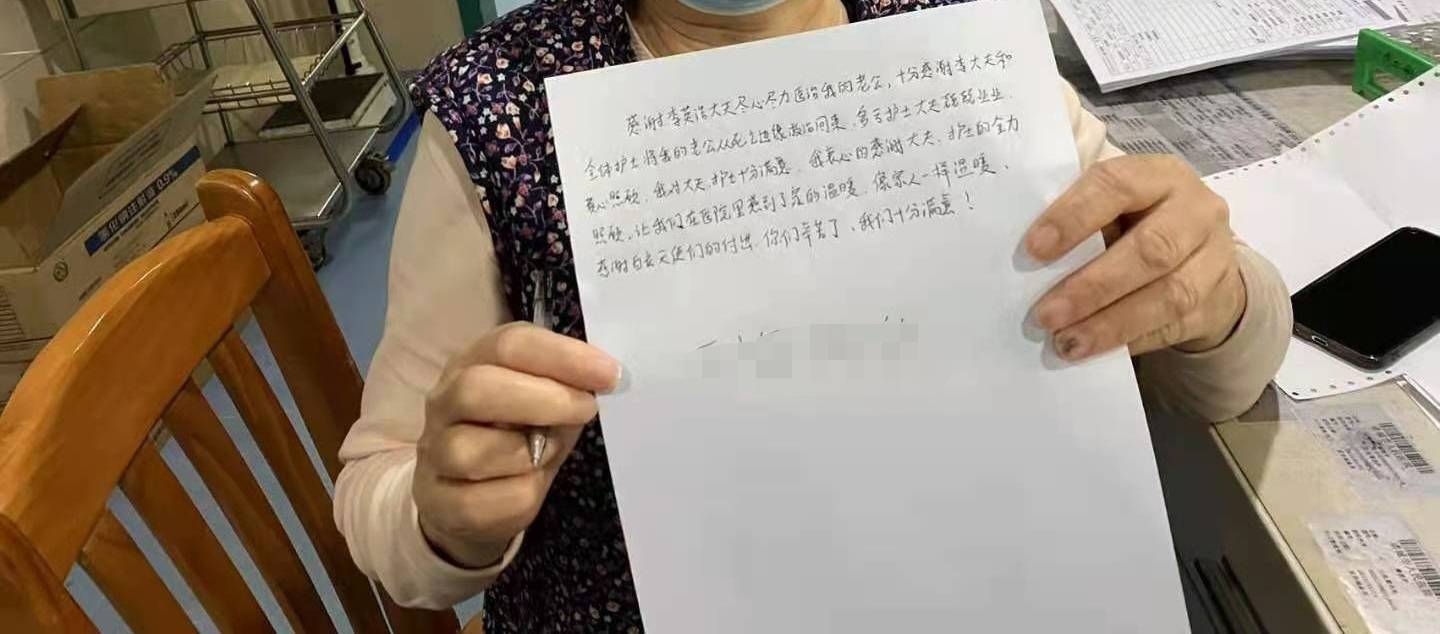 感谢李英浩大夫尽心尽力医治我的老公，十分感谢李大夫和
全体护士将我的老公从死亡边缘救治回来，多亏护士大夫兢兢业业、
衷心照顾，我对大夫、护士十分满意，我衷心的感谢大夫、护士的全力
照顾，让我们在医院里感到了家的温暖，像家人一样温暖、
感谢白衣天使们的付出，你们辛苦了、我们十分满意！
0.9%